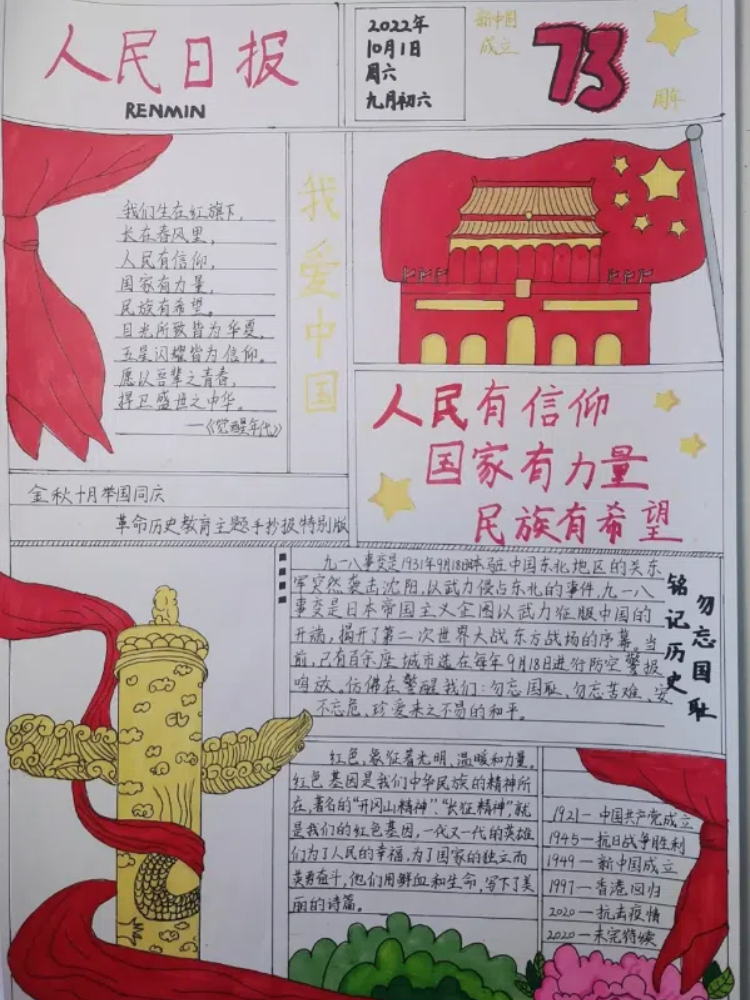 人民日报
RENMIN
2022年
10月1日
周六
九月初六
新中国
成立
73
周年
我们生在红旗下,
长在春风里,
人民有信仰,
国家有力量,
民族有希望。
目光所致皆为华夏,
五星闪耀皆为信仰。
愿以吾辈之青春,
捍卫盛世之中华。
—《觉醒年代》
我爱中国
人民有信仰
国家有力量
民族有希望
金秋十月举国同庆
革命历史教育主题手抄报特别版
九一八事变是1931年9月18日日本驻中国东北地区的关东
军突然袭击沈阳,以武力侵占东北的事件,九一八
事变是日本帝国主义企图以武力征服中国的
开端,揭开了第二次世界大战东方战场的序幕。当
前,已有百余座城市选在每年9月18日进行防空警报
鸣放,仿佛在警醒我们:勿忘国耻、勿忘苦难、安
不忘危,珍爱来之不易的和平。
勿忘国耻
铭记历史
红色,象征着光明、温暖和力量。
红色基因是我们中华民族的精神所
在,著名的“井冈山精神”、“长征精神”就
是我们的红色基因,一代又一代的英雄
们为了人民的幸福,为了国家的独立而
英勇奋斗,他们用鲜血和生命,写下了美
丽的诗篇。
1921—中国共产党成立
1945—抗日战争胜利
1949—新中国成立
1997—香港回归
2020—抗击疫情
2020—未完待续